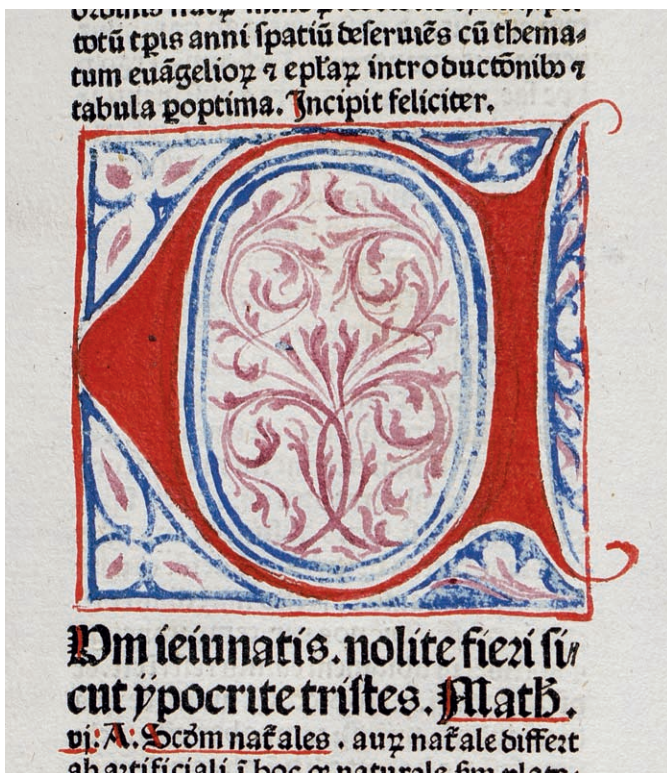 totū tp̄is anni ſpatiū deſeruiēs cū thema⸗
tum euāgelioꝝ ⁊ ep̄ł'aꝝ introductōnibꝫ ⁊
tabula ꝑoptima. Incipit feliciter.
Um ieiunatis. nolite fieri ſi⸗
cut ẏpocrite triſtes. Math̄.
vj: A. Scd̄m nať ales . auꝝ nať ale differt
ab artificiali ī hoc ꝙ